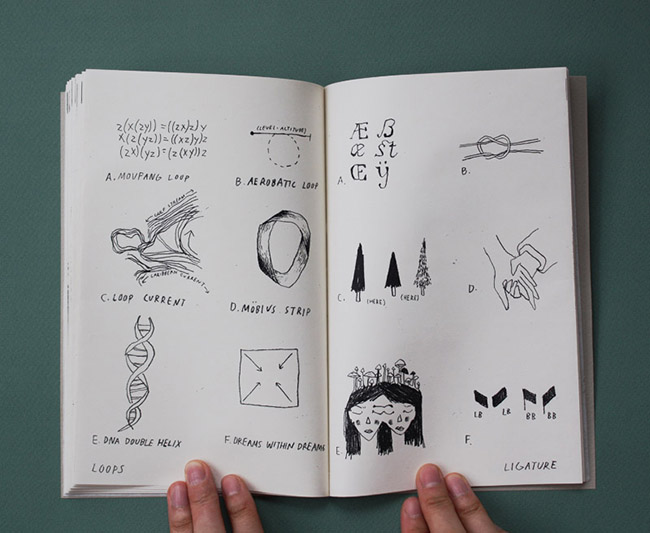 z(x(zy)) = ((zx)z)y
x(z(yz)) = ((xz)y)z
(zx)(yz) = (z(xy))z
A. MOUFANG LOOP
(LEVEL-ALTITUDE)
B. AEROBATIC LOOP
LOOP CURRENT
CARIBBEAN CURRENT
C. LOOP CURRENT
D. MÖBIUS STRIP
E. DNA DOUBLE HELIX
F. DREAMS WITHIN DREAMS
LOOPS
Æ ß
æ st
Œ ÿ
A.
B.
C. (HERE) (HERE)
D.
E.
LB LB BB BB
F.
LIGATURE